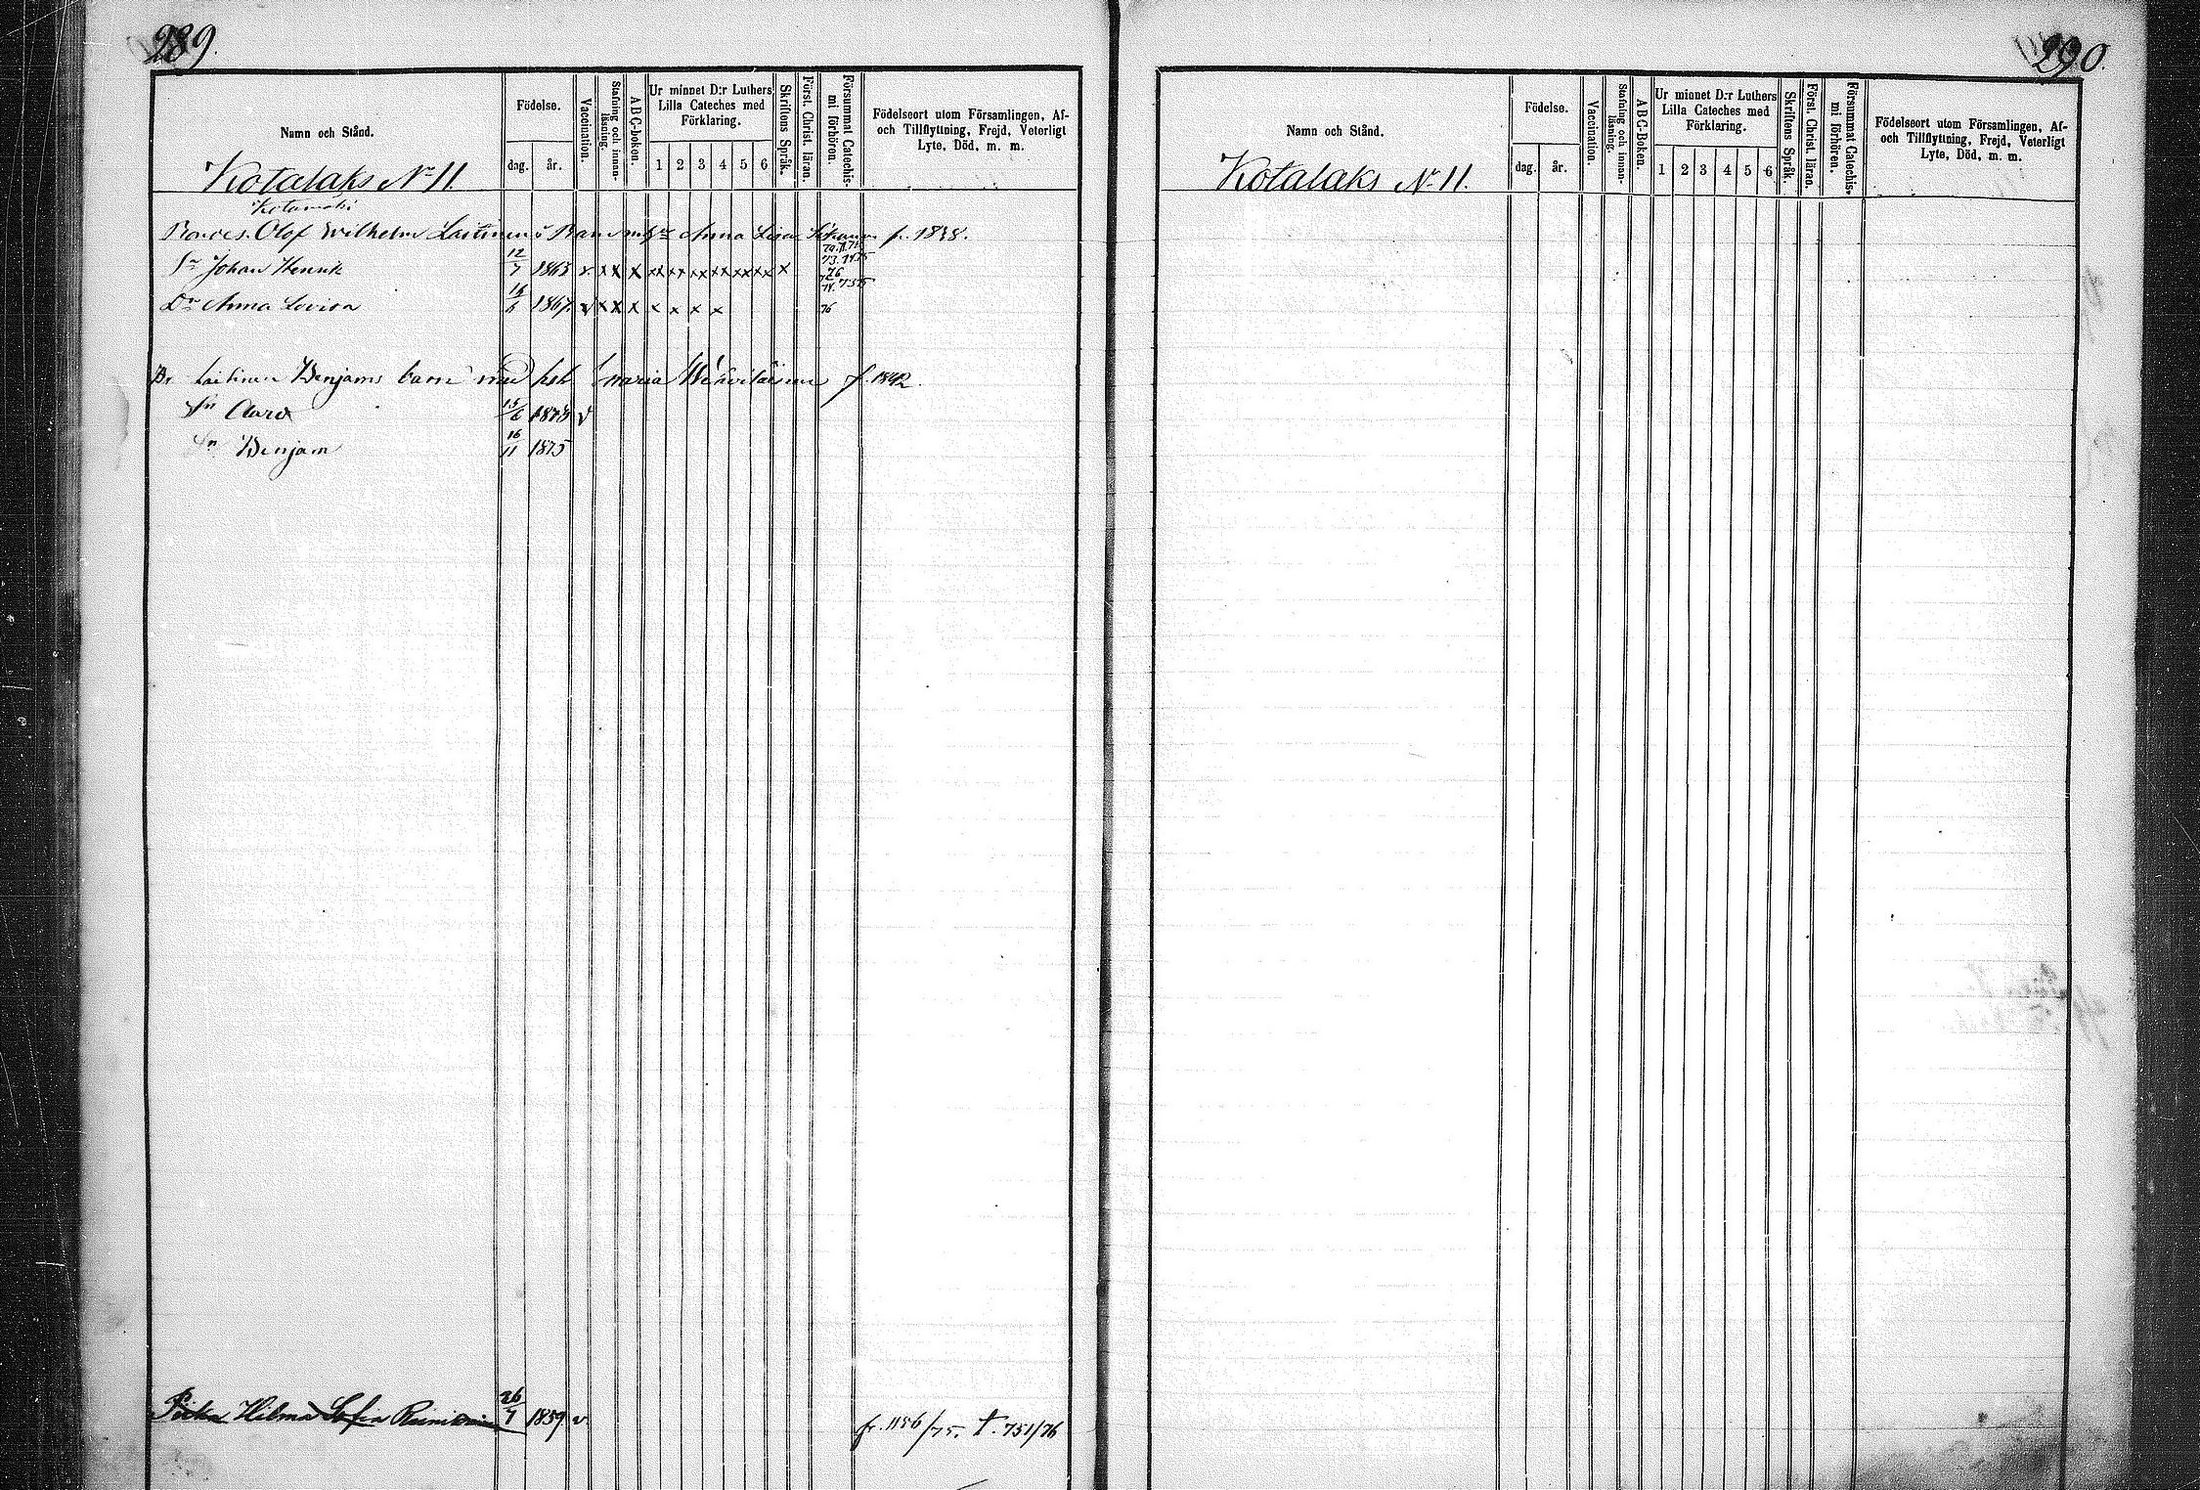 289.
Namn och Stånd.
Födelse.
dag. år.
Vaccination.
Stafning och innan-
läsning.
ABC-boken.
Ur minnet D:r Luthers
Lilla Cateches med
Förklaring.
1 2 3 4 5 6
Skriftens Språk.
Först. Christ. läran.
Försummat Catechis-
mi förhören.
Födelseort utom Församlingen, Af-
och Tillflyttning, Frejd, Veterligt
Lyte, Död, m. m.
Kotalaks No 11.
Kotamäki
Olof Wilhelm Laitinen o Anna Lisa f. 1838.
Sn Johan Henrik 12/7 1863 x x x x xx xx xx xx xx xx x 76
Dr Anna Lovisa 1867. v x x x x x x x 76
Br Laitinen Benjams barn med hst Maria f. 1842.
Sn 15/6 1873 v
Sn Benjam 16/11 1875
Hilma Sofia 26/7 1859 v. fr. 1156/75. t. 751/76
290.
Namn och Stånd.
Födelse.
dag. år.
Vaccination.
Stafning och innan-
läsning.
ABC-Boken.
Ur minnet D:r Luthers
Lilla Cateches med
Förklaring.
1 2 3 4 5 6
Skriftens Språk.
Först. Christ. läran.
Försummat Catechis-
mi förhören.
Födelseort utom Församlingen, Af-
och Tillflyttning, Frejd, Veterligt
Lyte, Död, m. m.
Kotalaks No 11.